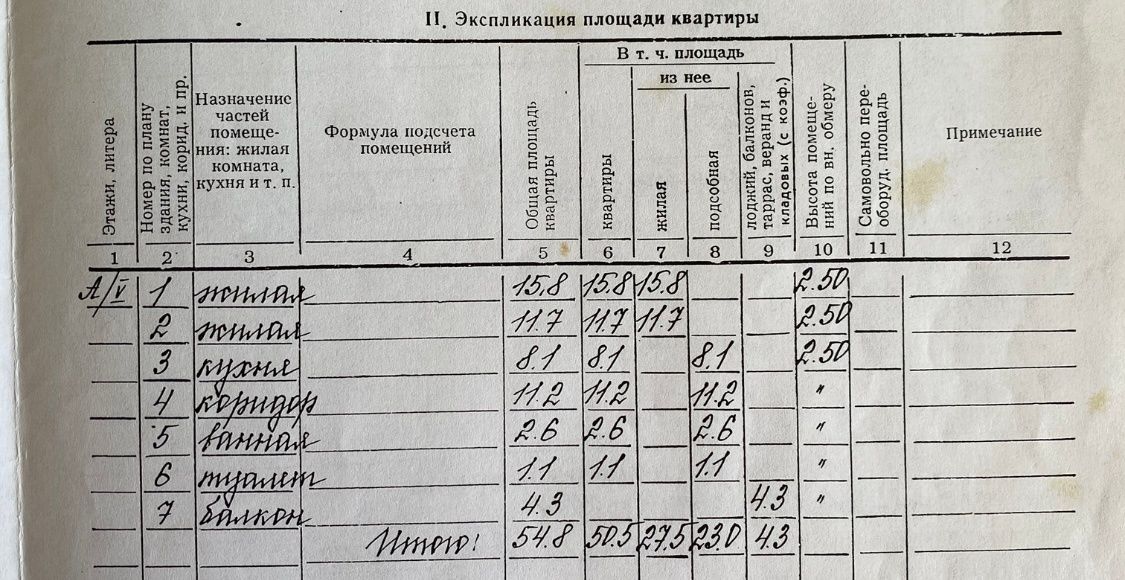 II. Экспликация площади квартиры
Этажи, литера
Номер по плану
здания, комнат,
кухни, корид. и пр.
Назначение
частей
помеще-
ния: жилая
комната,
кухня и т. п.
Формула подсчета
помещений
Общая площадь
квартиры
В т. ч. площадь
квартиры
из нее
жилая
подсобная
лоджий, балконов,
таррас, веранд и
кладовых (с коэф.)
Высота помеще-
ний по вн. обмеру
Самовольно пере-
оборуд. площадь
Примечание
1 2 3 4 5 6 7 8 9 10 11 12
А/V 1 жилая 15.8 15.8 15.8 2.50
2 жилая 11.7 11.7 11.7 2.50
3 кухня 8.1 8.1 8.1 2.50
4 коридор 11.2 11.2 11.2 "
5 ванная 2.6 2.6 2.6 "
6 туалет 1.1 1.1 1.1 "
7 балкон 4.3 4.3 "
Итого: 54.8 50.5 27.5 23.0 4.3